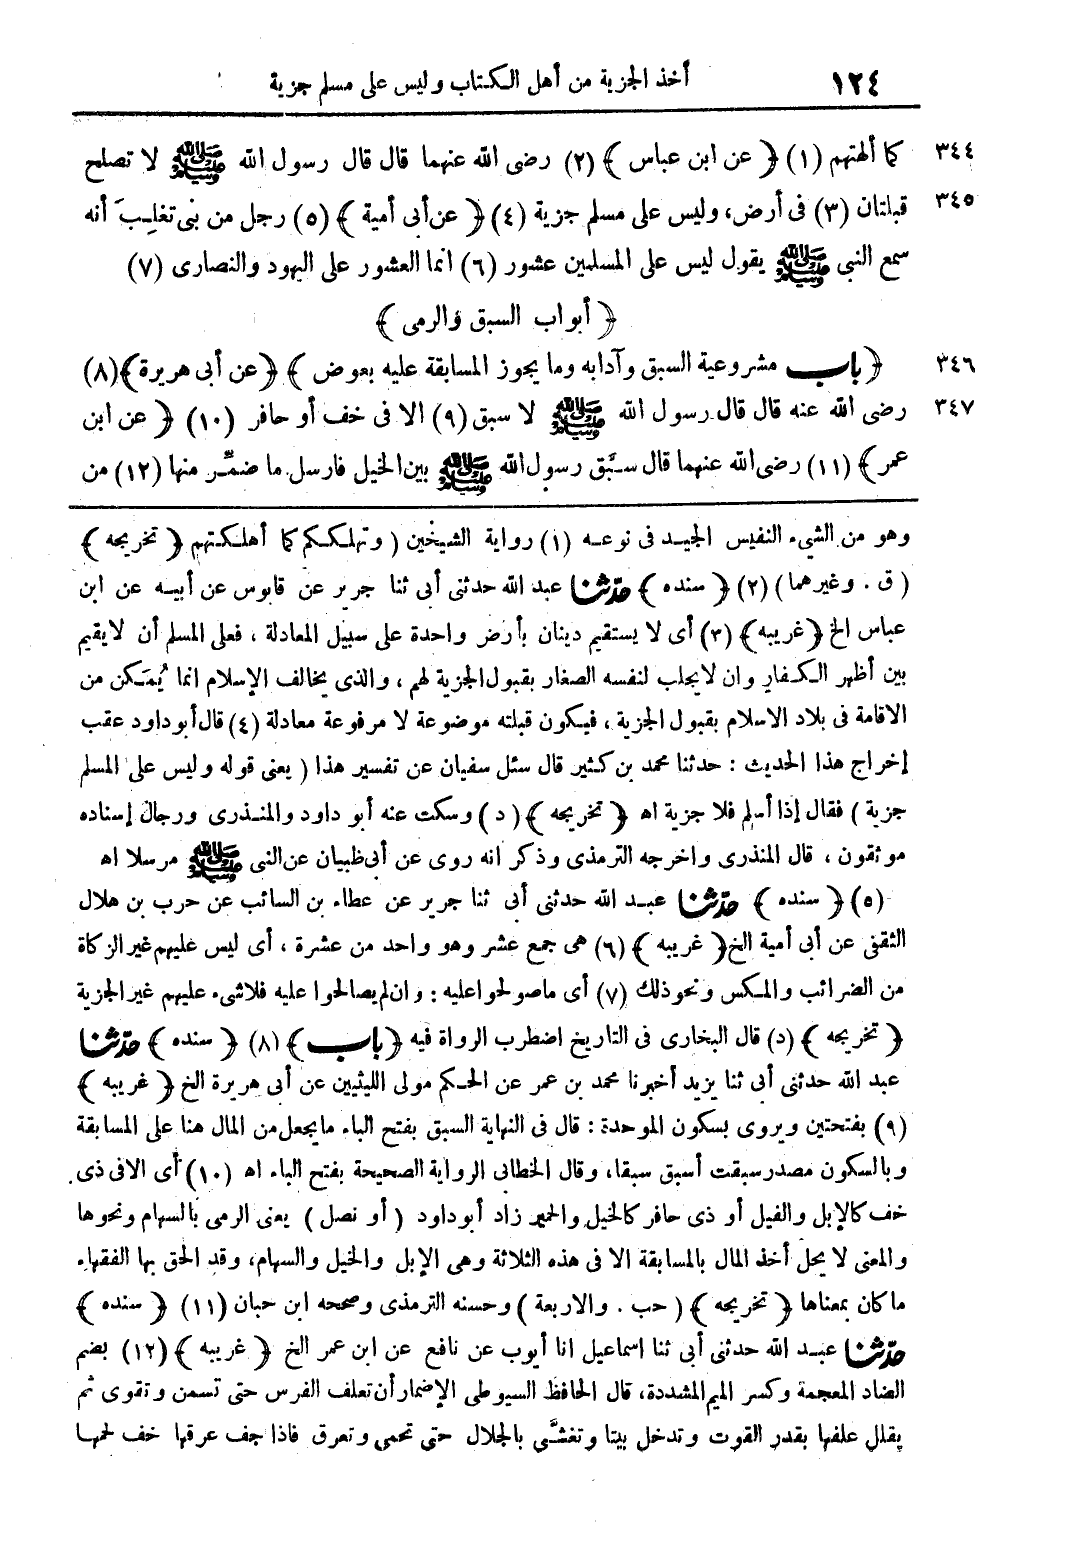 ١٢٤ أخذ الجزية من أهل الكتاب وليس على مسلم جزية
٣٤٤ كما ألهتهم (١) ﴿ عن ابن عباس ﴾ (٢) رضى الله عنهما قال قال رسول الله ﷺ لا تصلح
٣٤٥ قبلتان (٣) فى أرض، وليس على مسلم جزية (٤) ﴿ عن أبى أمية ﴾ (٥) رجل من بنى تغلِبَ أنه
سمع النبى ﷺ يقول ليس على المسلمين عشور (٦) انما العشور على اليهود والنصارى (٧)
﴿ أبواب السبق والرمى ﴾
٣٤٦ ﴿ باب مشروعية السبق وآدابه وما يجوز المسابقة عليه بعوض ﴾ ﴿ عن أبى هريرة ﴾ (٨)
٣٤٧ رضى الله عنه قال قال رسول الله ﷺ لا سبق (٩) الا فى خف أو حافر (١٠) ﴿ عن ابن
عمر ﴾ (١١) رضى الله عنهما قال سبَّق رسول الله ﷺ بين الخيل فارسل ما ضمِّر منها (١٢) من
وهو من الشىء النفيس الجيد فى نوعه (١) رواية الشيخين ( وتهلككم كما أهلكتهم ﴿ تخريجه ﴾
( ق . وغيرهما ) (٢) ﴿ سنده ﴾ حدّثنا عبد الله حدثنى أبى ثنا جرير عن قابوس عن أبيه عن ابن
عباس الخ ﴿ غريبه ﴾ (٣) أى لا يستقيم دينان بأرض واحدة على سبيل المعادلة ، فعلى المسلم أن لا يقيم
بين أظهر الكفار وان لا يجلب لنفسه الصغار بقبول الجزية لهم ، والذى يخالف الإسلام انما يُمَكن من
الاقامة فى بلاد الاسلام بقبول الجزية ، فيكون قبلته موضوعة لا مرفوعة معادلة (٤) قال أبو داود عقب
إخراج هذا الحديث : حدثنا محمد بن كثير قال سئل سفيان عن تفسير هذا ( يعنى قوله وليس على المسلم
جزية ) فقال إذا أسلم فلا جزية اه ﴿ تخريجه ﴾ ( د ) وسكت عنه أبو داود والمنذرى ورجال إسناده
موثقون ، قال المنذرى واخرجه الترمذى وذكر انه روى عن أبى ظبيان عن النبى ﷺ مرسلا اه
(٥) ﴿ سنده ﴾ حدّثنا عبد الله حدثنى أبى ثنا جرير عن عطاء بن السائب عن حرب بن هلال
الثقفى عن أبى أمية الخ ﴿ غريبه ﴾ (٦) هى جمع عشر وهو واحد من عشرة ، أى ليس عليهم غير الزكاة
من الضرائب والمكس ونحو ذلك (٧) أى ما صولحوا عليه : وان لم يصالحوا عليه فلا شىء عليهم غير الجزية
﴿ تخريجه ﴾ (د) قال البخارى فى التاريخ اضطرب الرواة فيه ﴿ باب ﴾ (٨) ﴿ سنده ﴾ حدّثنا
عبد الله حدثنى أبى ثنا يزيد أخبرنا محمد بن عمر عن الحكم مولى الليثيين عن أبى هريرة الخ ﴿ غريبه ﴾
(٩) بفتحتين ويروى بسكون الموحدة : قال فى النهاية السبق بفتح الباء ما يجعل من المال هنا على المسابقة
وبالسكون مصدر سبقت أسبق سبقا، وقال الخطابى الرواية الصحيحة بفتح الباء اه (١٠) أى الا فى ذى
خف كالإبل والفيل أو ذى حافر كالخيل والحمير زاد أبو داود ( أو نصل ) يعنى الرمى بالسهام ونحوها
والمعنى لا يحل أخذ المال بالمسابقة الا فى هذه الثلاثة وهى الإبل والخيل والسهام، وقد الحق بها الفقهاء
ما كان بمعناها ﴿ تخريجه ﴾ ( حب . والاربعة ) وحسنه الترمذى وصححه ابن حبان (١١) ﴿ سنده ﴾
حدّثنا عبد الله حدثنى أبى ثنا اسماعيل انا أيوب عن نافع عن ابن عمر الخ ﴿ غريبه ﴾ (١٢) بضم
الضاد المعجمة وكسر الميم المشددة، قال الحافظ السيوطى الإضمار أن تعلف الفرس حتى تسمن وتقوى ثم
يقلل علفها بقدر القوت وتدخل بيتا وتغشَّى بالجلال حتى تحمى وتعرق فاذا جف عرقها خف لحمها